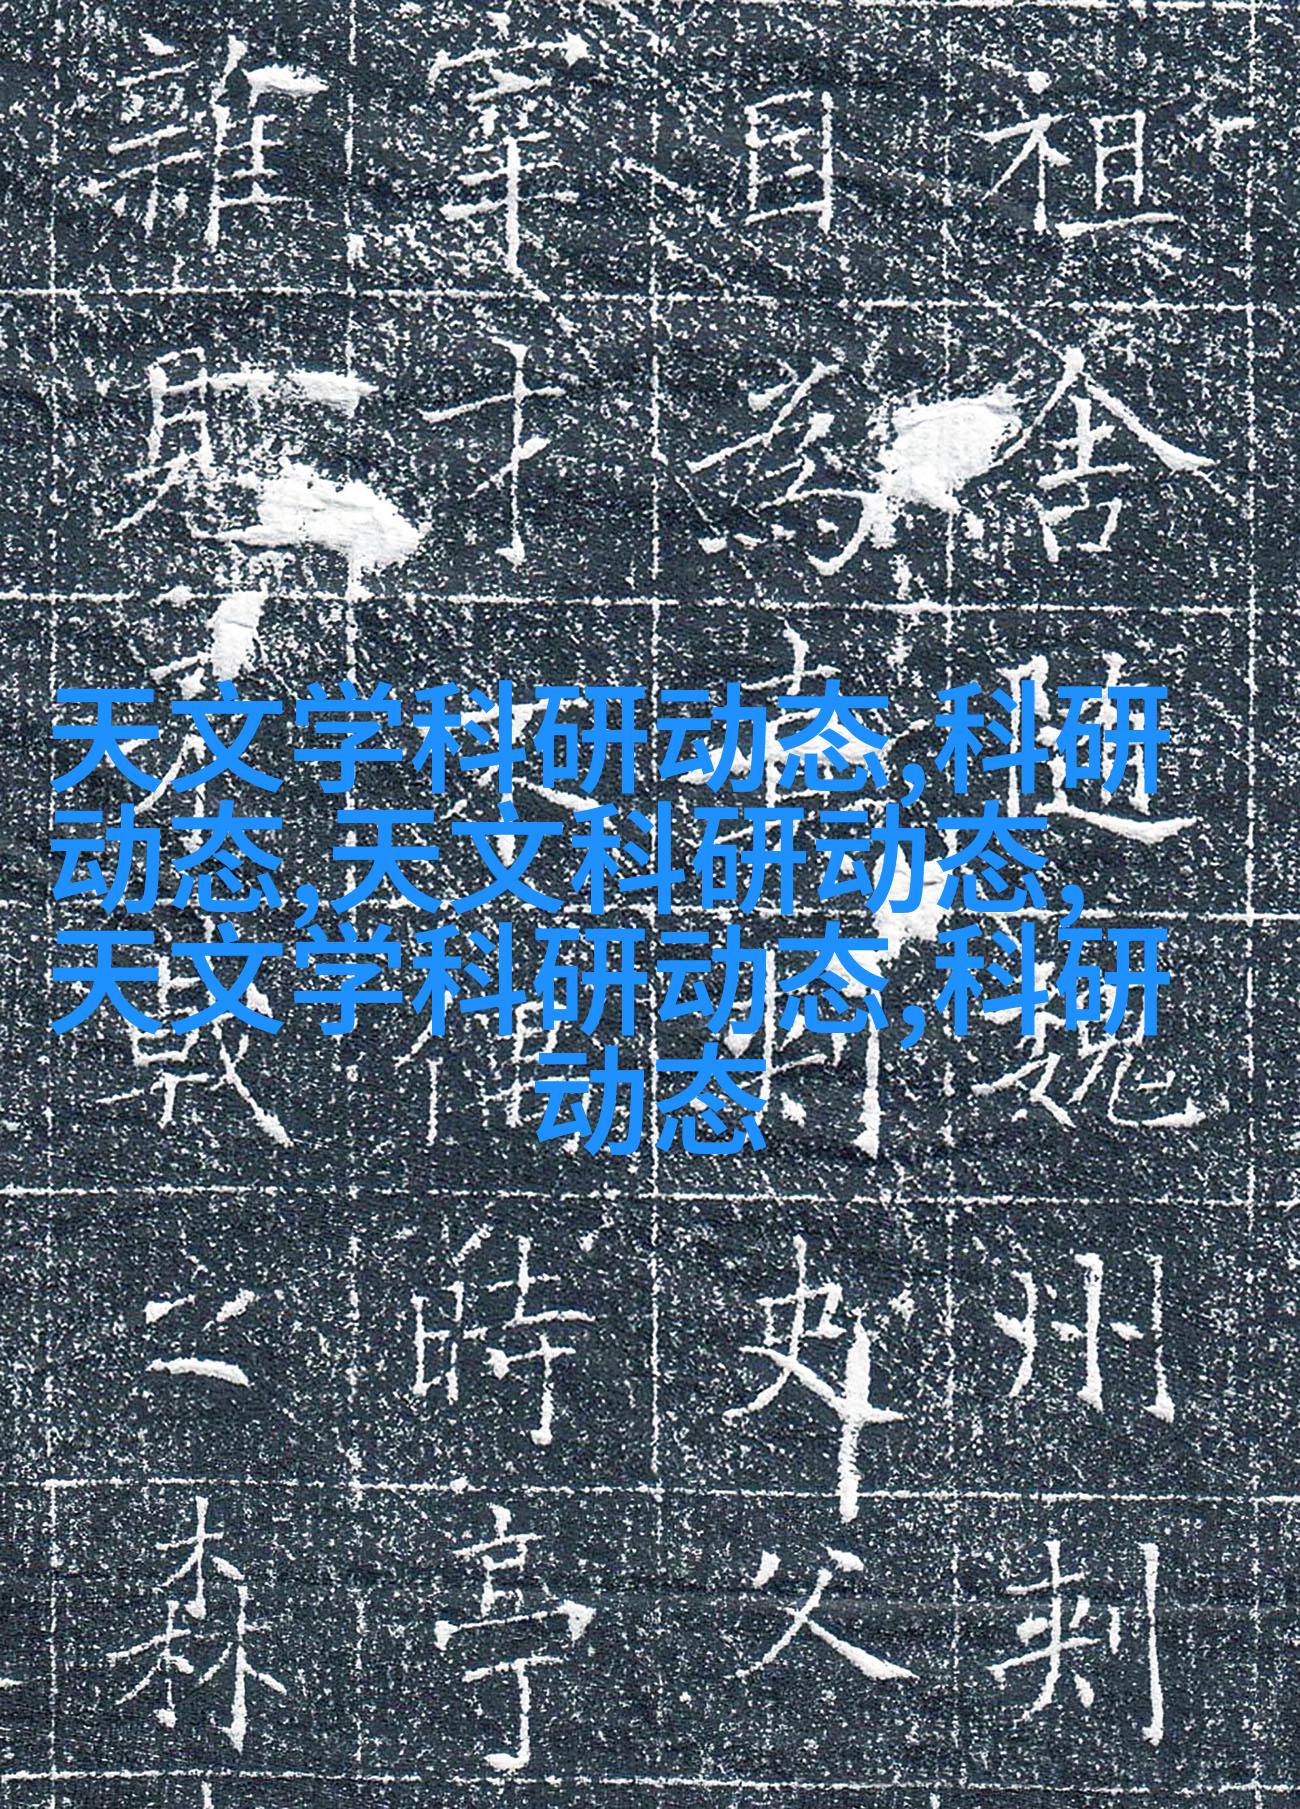 天文学科研动态,科研
动态,天文科研动态,
天文学科研动态,科研
动态
祖舍随魏州刺
目為史父
宰才時亭
雖森